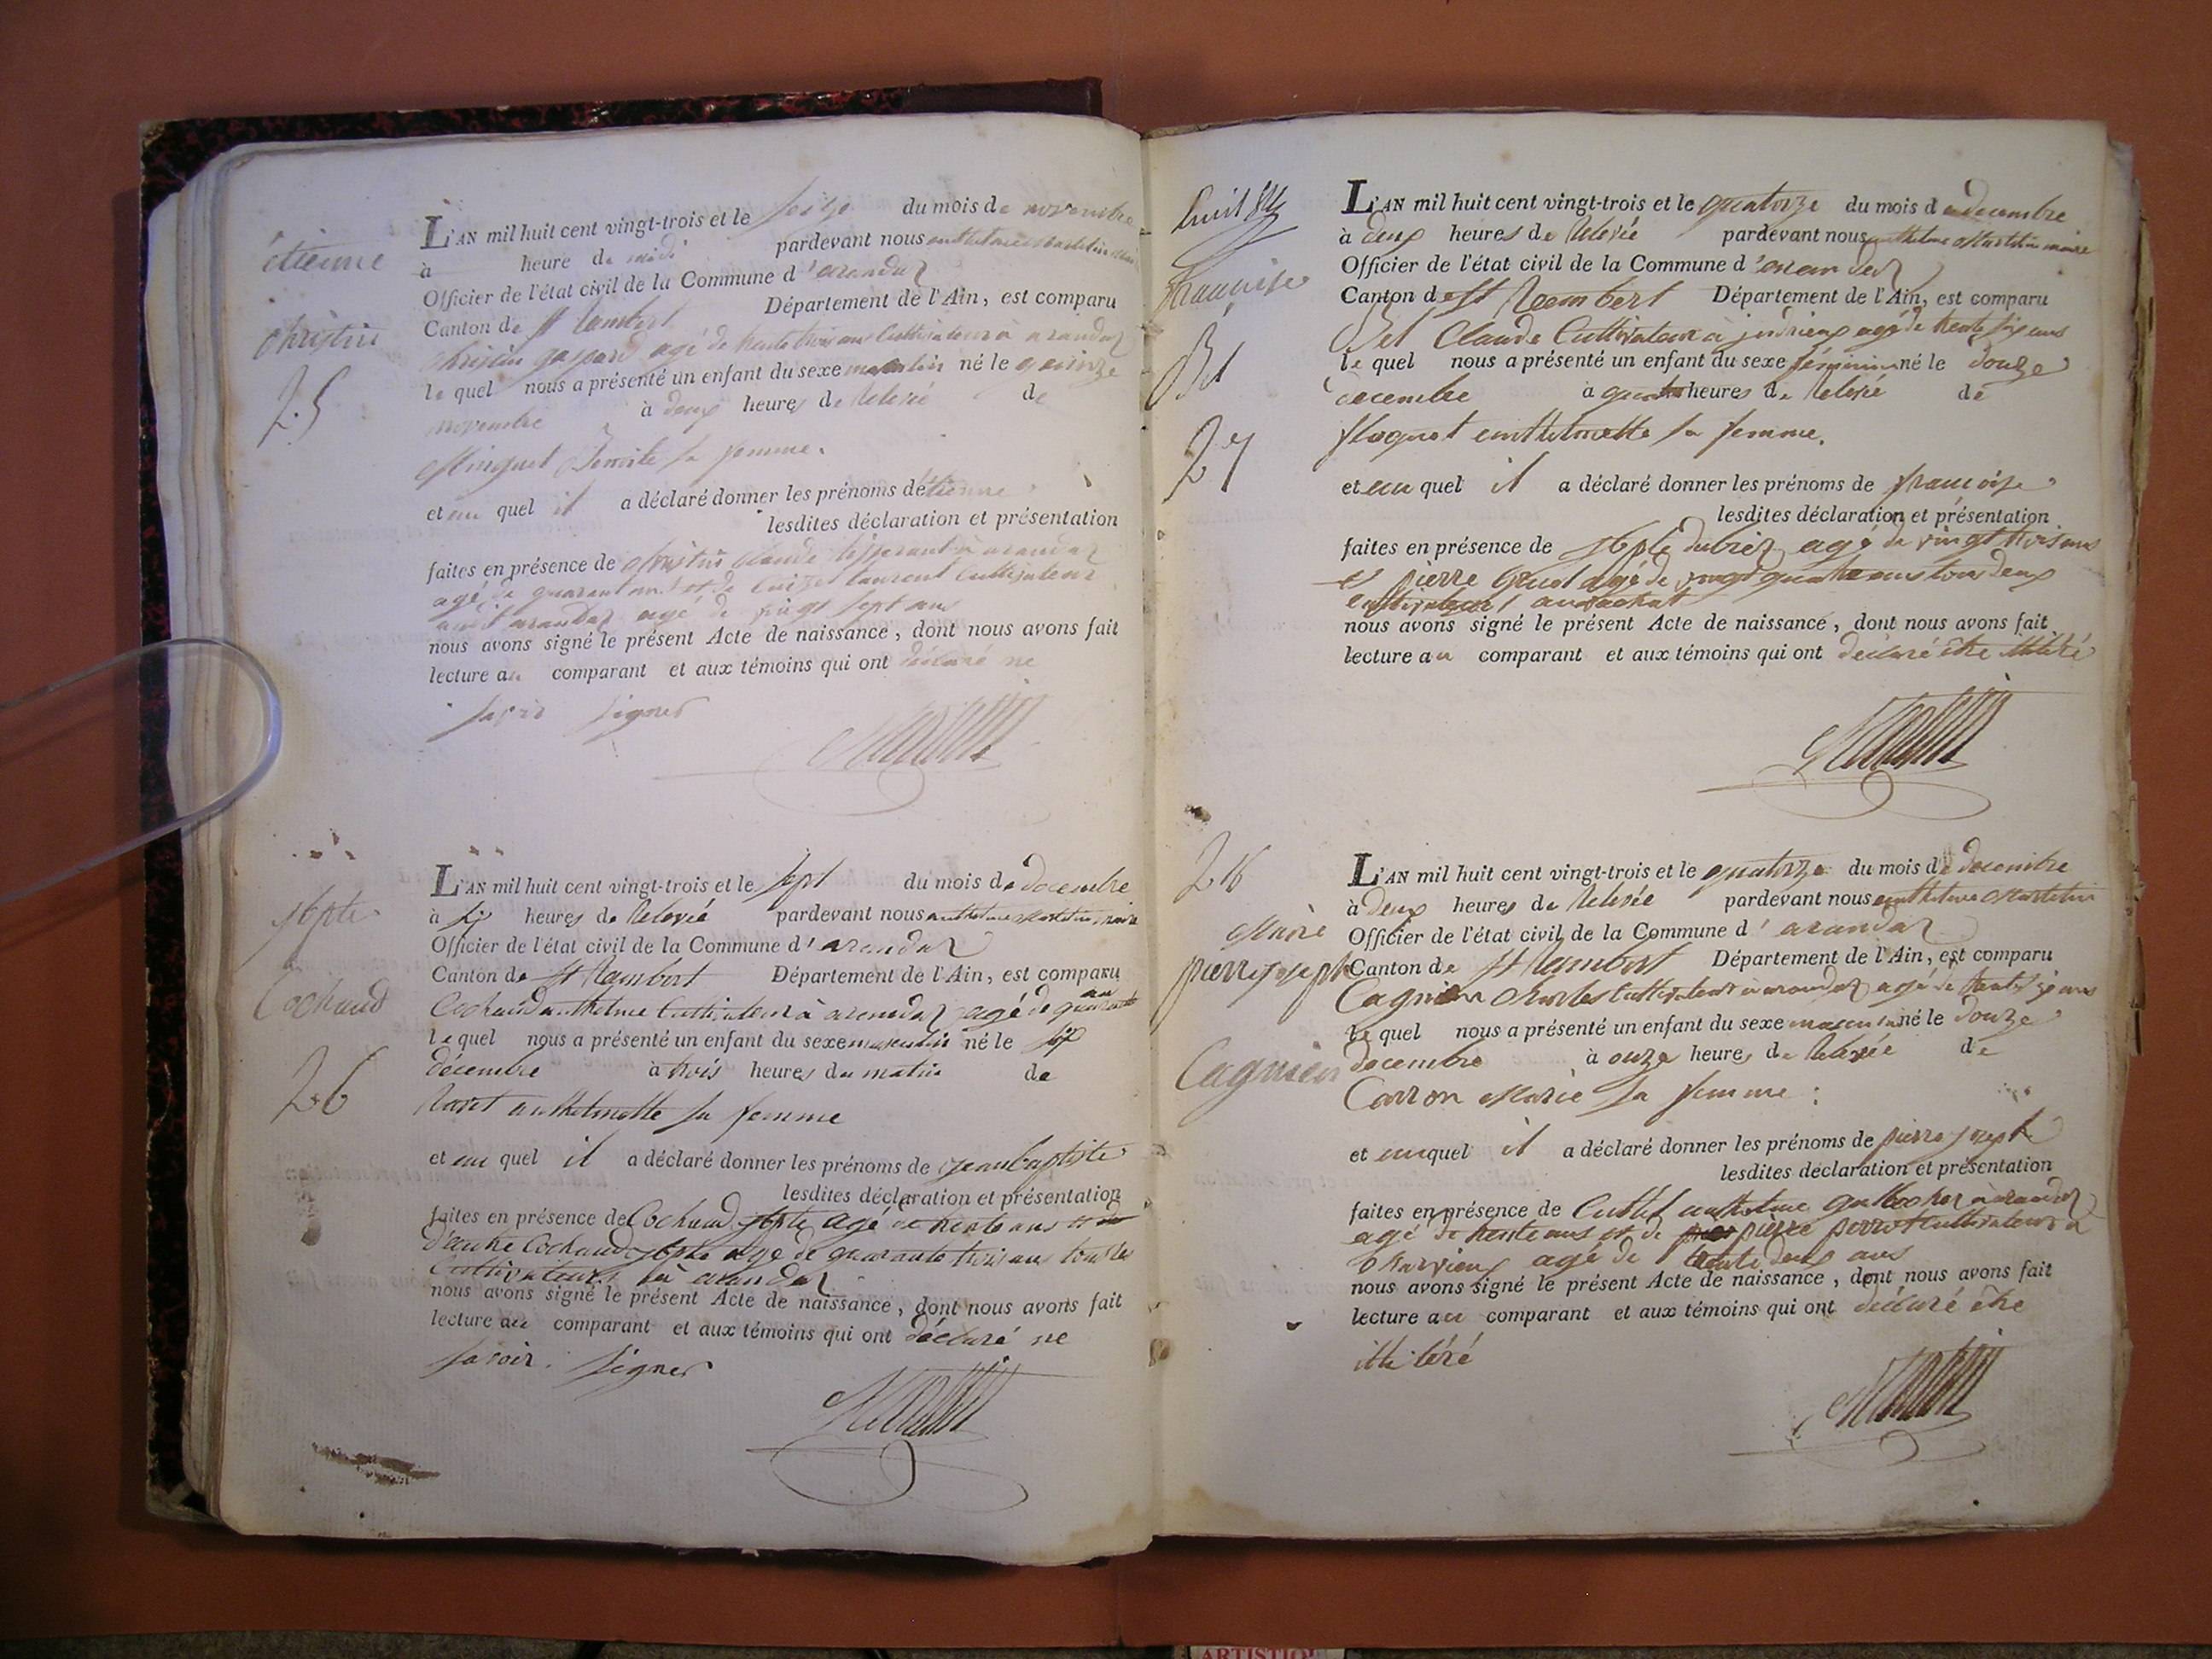 étienne
christin
25
L'AN mil huit cent vingt-trois et le seize du mois de novembre
à heure de midi pardevant nous anthelme martelin maire
Officier de l'état civil de la Commune d'arandaz
Canton de st Rambert Département de l'Ain, est comparu
christin gaspard agé de trente trois ans Cultivateur à arandaz
le quel nous a présenté un enfant du sexe masculin né le quinze
novembre à deux heures de Relevée de
Minguet Benoite sa femme.
et au quel il a déclaré donner les prénoms détienne
lesdites déclaration et présentation
faites en présence de christin Claude tisserant à arandaz
agé de quarant ans et de laurent Cultivateur
audit arandaz agé de vingt sept ans
nous avons signé le présent Acte de naissance, dont nous avons fait
lecture au comparant et aux témoins qui ont déclaré ne
savoir signer
jbpte
Cochaud
26
L'AN mil huit cent vingt-trois et le sept du mois de decembre
à six heures de Relevée pardevant nous anthelme martelin maire
Officier de l'état civil de la Commune d'arandaz
Canton de st Rambert Département de l'Ain, est comparu
Cochaud anthelme Cultivateur à arandaz agé de quarante
ans
le quel nous a présenté un enfant du sexe masculin né le six
décembre à trois heures du matin de
anthelmette sa femme
et au quel il a déclaré donner les prénoms de jean baptiste
lesdites déclaration et présentation
faites en présence de Cochaud jbpte agé de trente ans et
d'autre Cochaud jbpte agé de quarante trois ans tous les
Cultivateurs à arandaz
nous avons signé le présent Acte de naissance, dont nous avons fait
lecture au comparant et aux témoins qui ont déclaré ne
savoir signer
françoise
Bel
27
L'AN mil huit cent vingt-trois et le quatorze du mois de decembre
à deux heures de Relevée pardevant nous anthelme Martelin maire
Officier de l'état civil de la Commune d'arandaz
Canton de st Rambert Département de l'Ain, est comparu
Bel Claude Cultivateur à indrieux agé de trente six ans
le quel nous a présenté un enfant du sexe féminin né le douze
decembre à quatre heures de Relevée de
anthelmette sa femme.
et au quel il a déclaré donner les prénoms de françoise
lesdites déclaration et présentation
faites en présence de jbpte dubiez agé de vingt trois ans
et pierre agé de vingt quatre ans tous deux
cultivateurs
nous avons signé le présent Acte de naissance, dont nous avons fait
lecture au comparant et aux témoins qui ont déclaré être illitéré
28
pierre joseph
Cagnien
L'AN mil huit cent vingt-trois et le quatorze du mois de decembre
à deux heures de Relevée pardevant nous anthelme Martelin
maire
Officier de l'état civil de la Commune d'arandaz
Canton de st Rambert Département de l'Ain, est comparu
Cagnien charles Cultivateur à arandaz agé de trente six ans
le quel nous a présenté un enfant du sexe masculin né le douze
decembre à onze heures de Relevée de
Carron Marie sa femme :
et au quel il a déclaré donner les prénoms de pierre joseph
lesdites déclaration et présentation
faites en présence de anthelme à arandaz
agé de trente ans et de pierre perrot cultivateur à
agé de trente deux ans
nous avons signé le présent Acte de naissance, dont nous avons fait
lecture au comparant et aux témoins qui ont déclaré être
illitéré
ARTISTIQUE